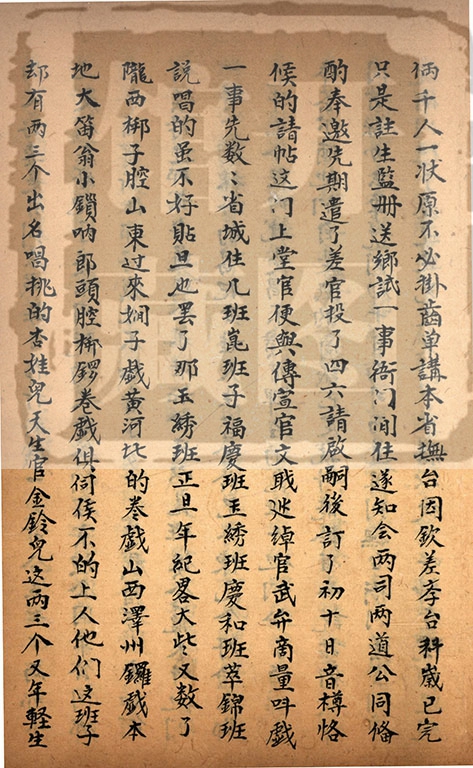 俩千人一状原不必掛齒单講本省撫台因欽差李台科嵗已完
只是註生監冊送鄉試一事衙门闲住遂知会两司两道公同偹
酌奉邀先期遣了差官投了四六請啟嗣後訂了初十日音樽恪
候的請帖这门上堂官便與傳宣官文戢廵綽官武弁商量呌戲
一事先数〻省城住几班崑班子福慶班玉綉班慶和班萃錦班
説唱的虽不好貼旦也罢了那玉綉班正旦年紀畧大些又数了
隴西梆子腔山東过來㛹子戯黄河北的卷戯山西澤州鑼戯本
地大笛翁小鎖呐郎頭腔梆鑼卷戯俱伺侯不的上人他们这班子
却有两三个出名唱挑的杏娃兒天生官金鈴兒这两三个又年軽生